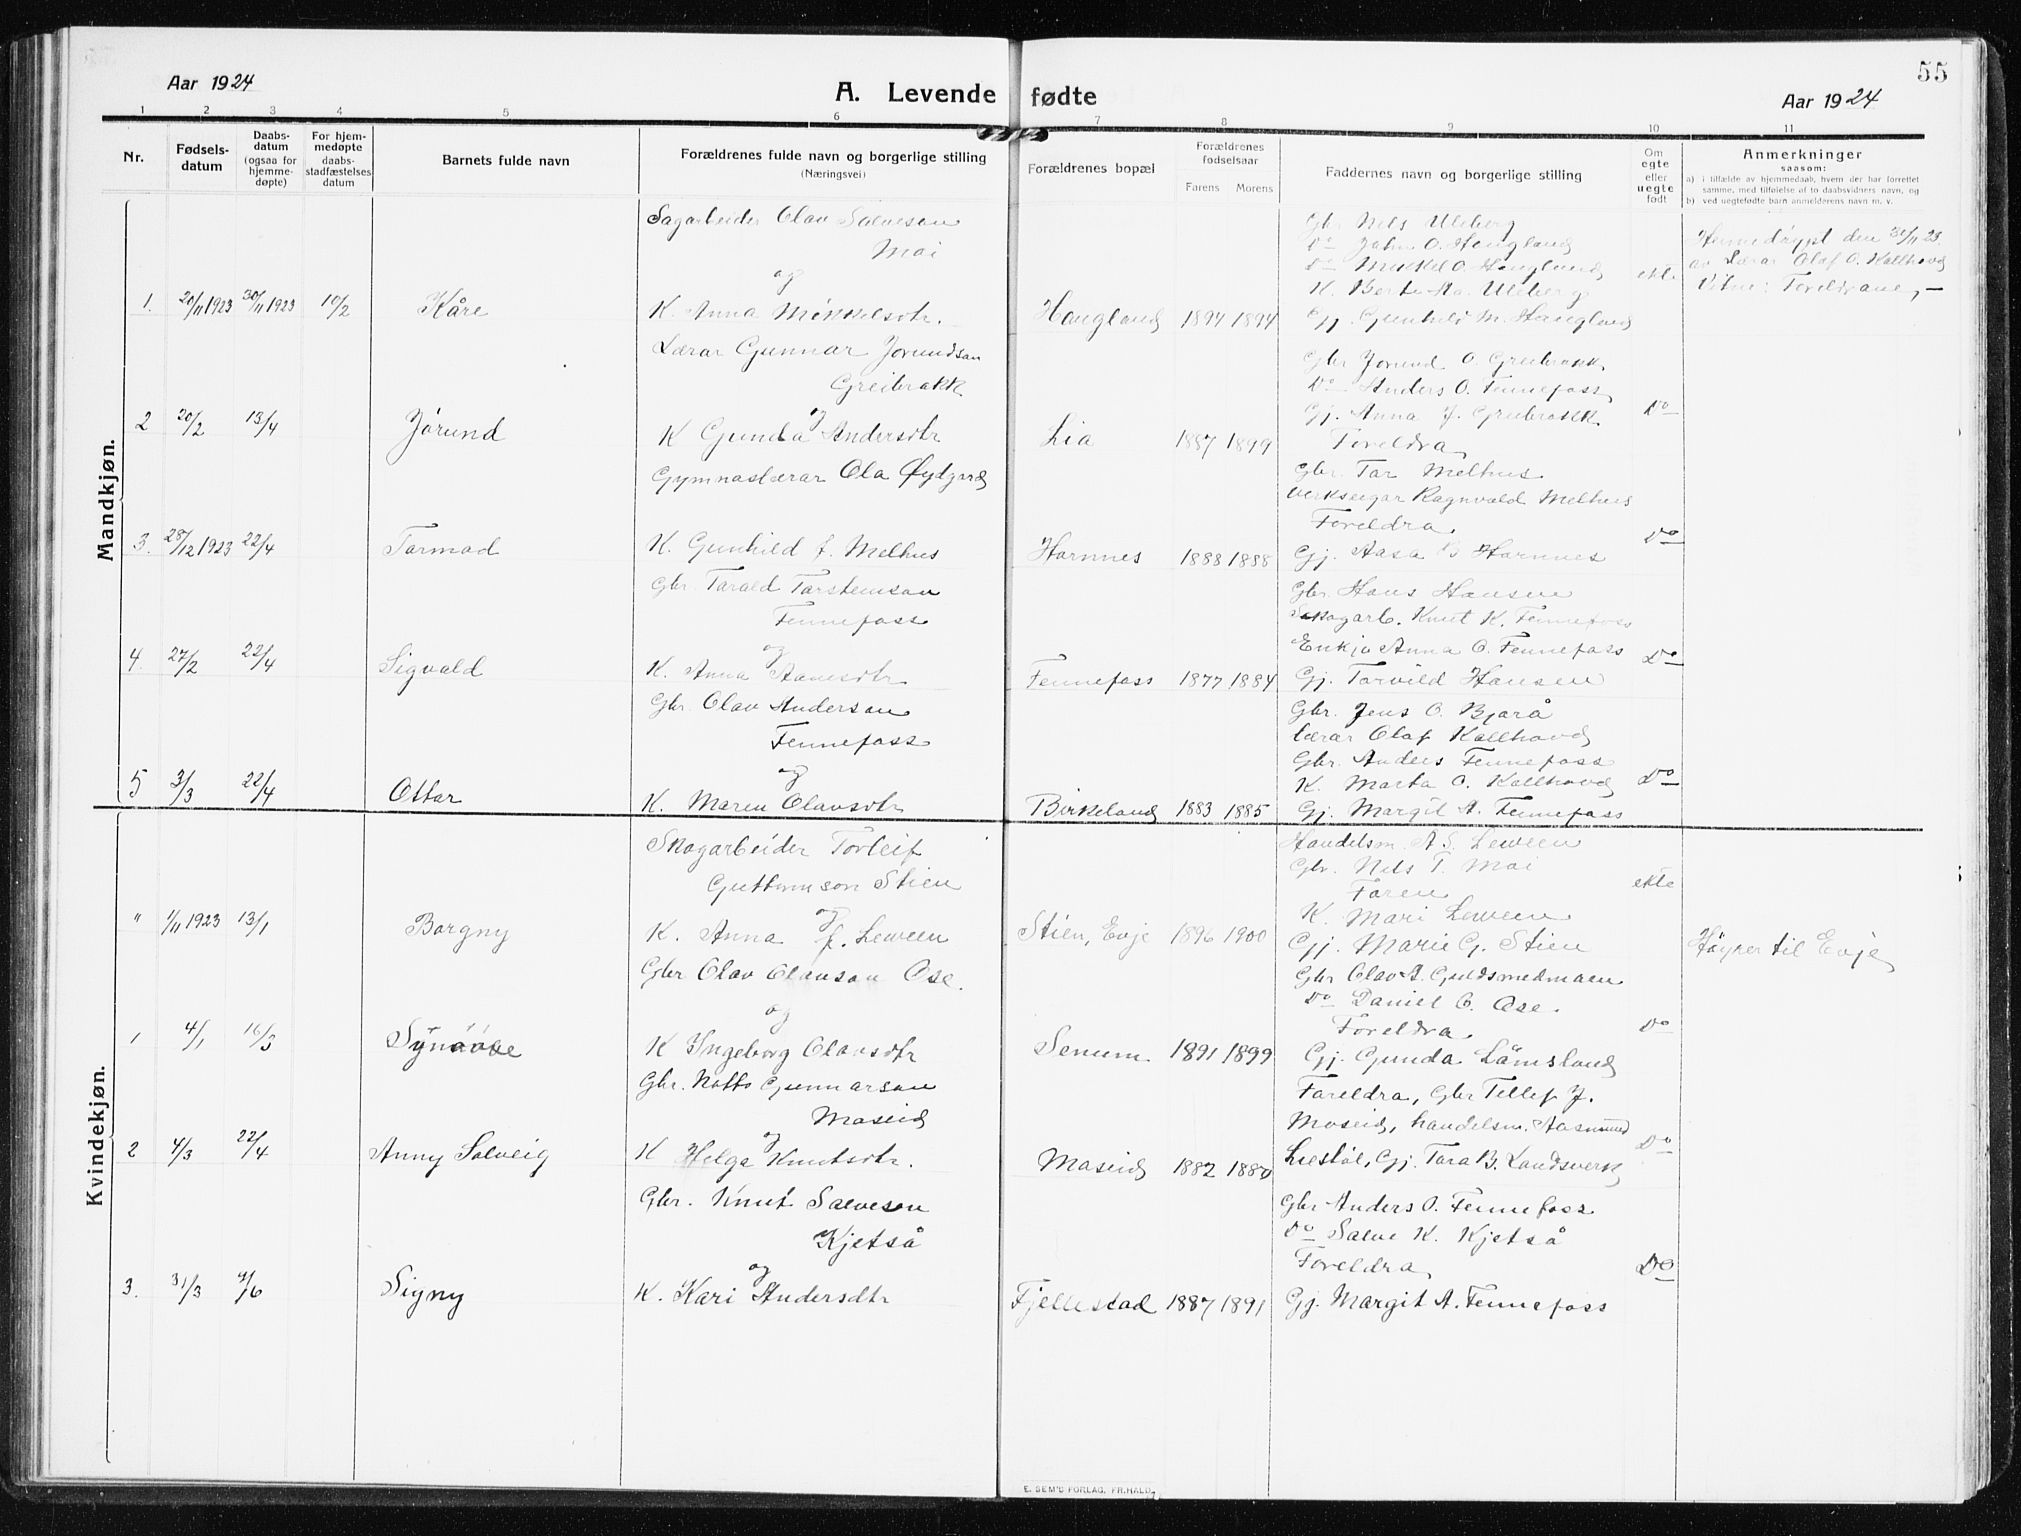 55
Aar 1924
A. Levende fødte
Aar 1924
1 2 3 4 5 6 7 8 9 10 11
Nr.
Fødsels-
datum
Daabs-
datum
(ogsaa for
hjemme-
døpte)
For hjem-
medøpte
daabs-
stadfæstelses
datum
Barnets fulde navn
Forældrenes fulde navn og borgerlige stilling
(Næringsvei)
Forældrenes bopæl
Forældrenes
fødselsaar
Farens Morens
Faddernes navn og borgerlige stilling
Om
egte
eller
uegte
født
Anmerkninger
saasom:
a) i tilfælde av hjemmedaab, hvem der har forrettet
samme, med tilføielse af to daabsvidners navn, og
b) ved uegtefødte barn anmelderens navn m. v.
Mandkjøn.
1. 20/11 1923 30/11 1923 10/2 Kåre
Sagarbeider Olav Salveson
Moi
og
K. Anna Mikkelsdtr.
Haugland 1894 1894
Gbr Nils Uleberg
Do John O. Haugland
Do Mikkel O. Haugland
K. Berte Uleberg
Gj. Gunhild M. Haugland
ekte
Heimedøypt den 30/11 23
av Lærar Olaf O. Kallhovd
Vitne: Foreldrane,-
2 20/2 13/4 Jørund
Lærar Gunnar Jorundson
Greibrokk
og
K Gunda Andersdtr
Lia 1887 1899
Gbr Jorund O. Greibrokk
Do Anders O. Fennefoss
Gj. Anna J. Greibrokk
Foreldra
Do
3. 28/12 1923 22/4 Tormod
Gymnaslærar Ola Øydgard
K. Gunhild J. Melhus
Hornnes 1888 1888
Gbr. Tor Melhus
Verkseigar Ragnvald Melhus
Foreldra
Gj. Aasa B Hornnes
Do
4. 27/2 22/4 Sigvald
Gbr. Tarald Torsteinson
Fennefoss
og
K. Anna Aanesdtr
Fennefoss 1877 1884
Gbr. Hans Hansen
Skogarb. Knut K. Fennefoss
Enkja Anna O. Fennefoss
Gj. Torvild Hansen
Do
5 3/3 22/4 Ottar
Gbr. Olav Anderson
Fennefoss
og
K. Maren Olavsdtr
Birkeland 1883 1885
Gbr. Jens O. Bjorå
Lærar Olaf Kallhovd
Gbr. Anders Fennefoss
K. Marta O. Kallhovd
Gj. Margit A. Fennefoss
Do
Kvindekjøn.
" 1/11 1923 13/1 Borgny
Skogarbeider Torleif
Guttormson Stien
og
K. Anna J. Leween
Stien, Evje 1896 1900
Handelsm. A S. Leween
Gbr. Nils T. Moi
Faren
K. Mari Leween
Gj. Marie G. Stien
ekte
Høyrer til Evje
1 4/1 16/3 Synøve
Gbr Olav Olavson Ose.
og
K Ingeborg Olavsdtr
Senum 1891 1899
Gbr Olav A. Guldsmedmoen
Do Daniel O. Ose.
Foreldra
Gj. Gunda Låmsland
Do
2 4/3 22/4 Anny Solveig
Gbr. Notto Gunnarson
Moseid
og
K Helga Knutsdtr.
Moseid 1882 1880
Foreldra, Gbr Tellef J.
Moseid, handelsm. Aasmund
Liestøl, Gj. Tora B. Landsverk
Do
3. 31/3 9/6 Signy
Gbr. Knut Salveson
Kjetså
og
K. Kari Andersdtr
Fjellestad 1887 1891
Gbr Anders O. Fennefoss
Do Salve K. Kjetså
Foreldra
Gj. Margit A. Fennefoss
Do
E. SEM'S FORLAG, FR.HALD